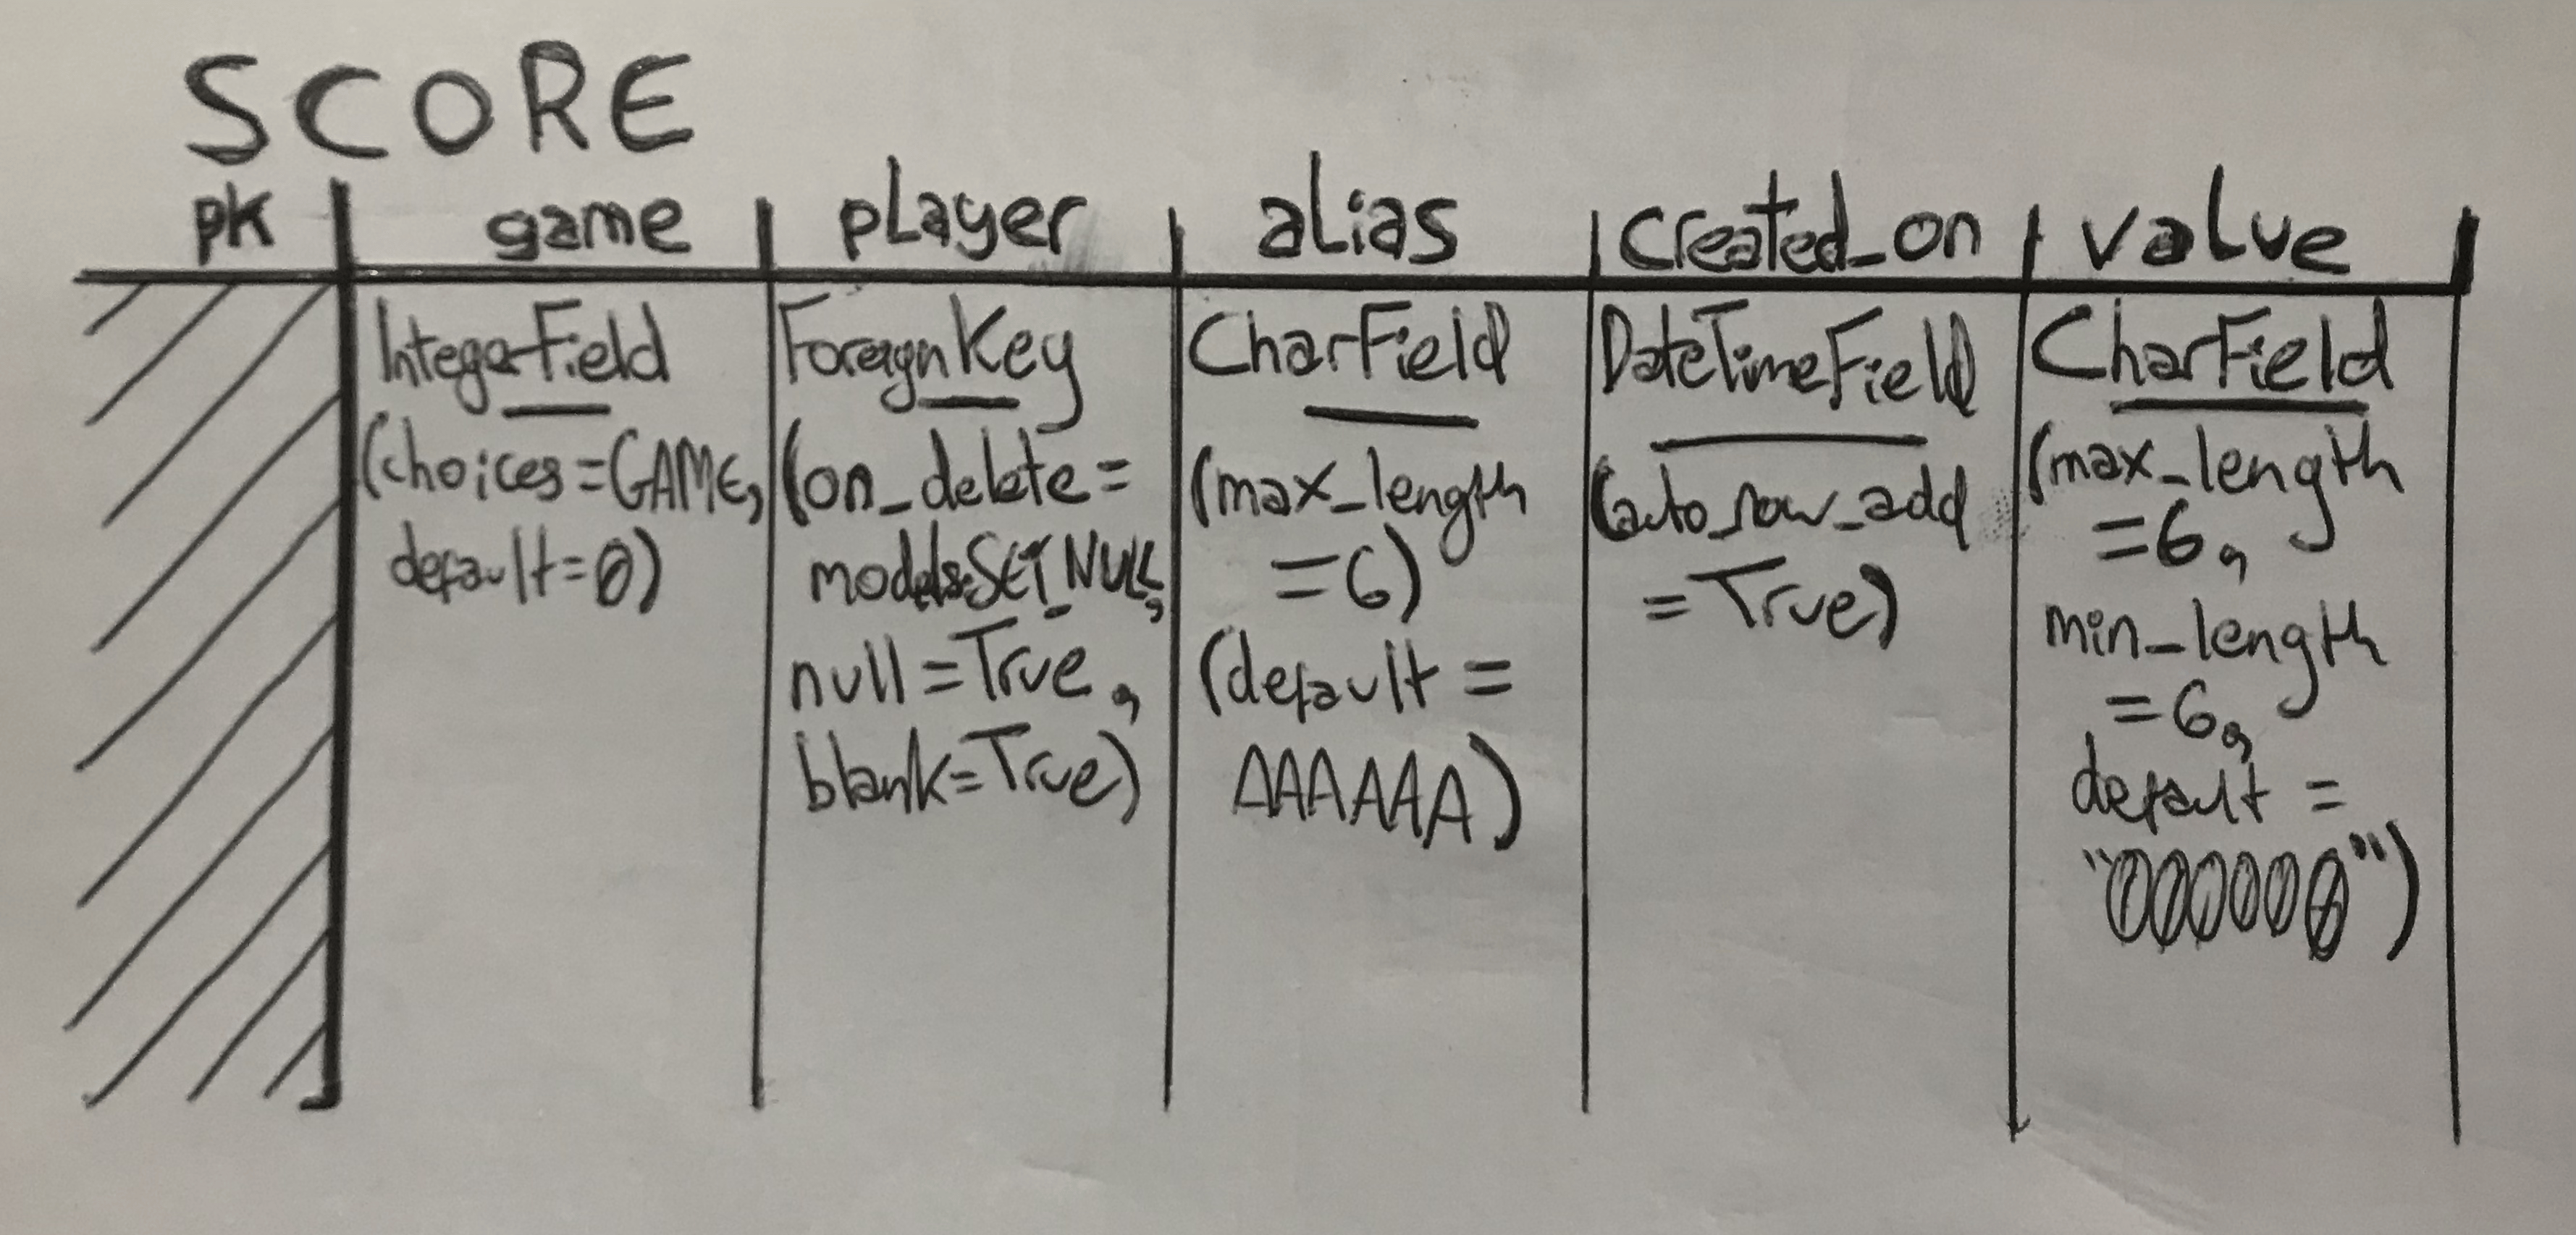 SCORE
pk game player alias created_on value
IntegerField
(choices=GAME,
default=0)
ForeignKey
(on_delete=
models.SET_NULL,
null=True,
blank=True)
CharField
(max_length
=6)
(default=
AAAAAA)
DateTimeField
(auto_now_add
=True)
CharField
(max_length
=6,
min_length
=6,
default=
"000000")